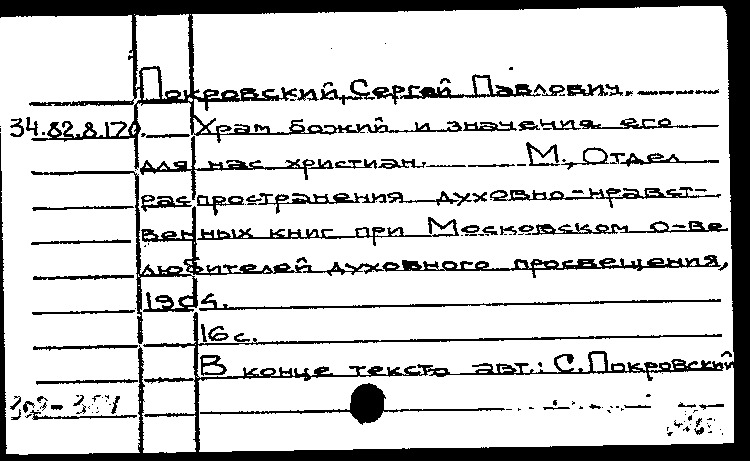 Покровский, Сергей Павлович.
34.82.8.170. Храм божий и значения его
для нас христиан. М., Отдел
распространения духовно-нравст-
венных книг при Московском о-ве
любителей духовного просвещения,
1904.
16 с.
В конце текста авт.: С. Покровский